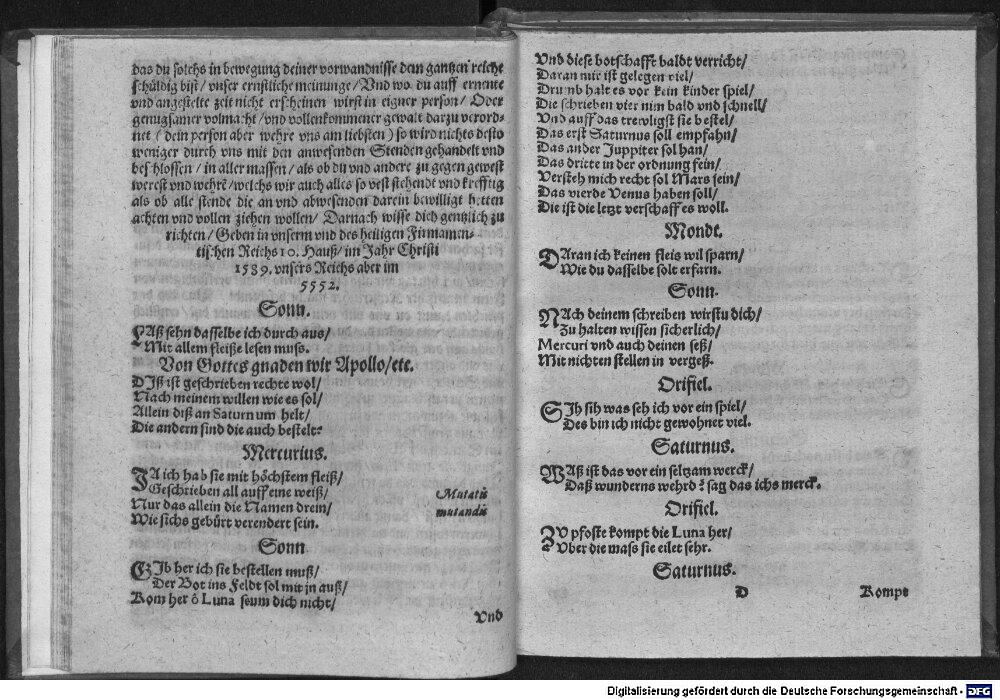 das du solchs in bewegung deiner vorwandnisse dem gantzen reiche
schüldig bist/ vnser ernstliche meinunge/ Vnd wo du auff ernente
vnd angestelte zeit nicht erscheinen wirst in eigner person/ Oder
genugsamer volmacht/ vnd vollenkommener gewalt darzu verord-
net ( dein person aber wehre vns am liebsten ) so wird nichts desto
weniger durch vns mit den anwesenden Stenden gehandelt vnd
beschlossen / in aller massen / als ob du vnd andere zu gegen gewest
werest vnd wehre/ welchs wir auch alles so vest stehendt vnd krefftig
als ob alle stende die an vnd abwesenden darein bewilligt hetten
achten vnd vollen ziehen wollen/ Darnach wisse dich gentzlich zu
richten/ Geben in vnserm vnd des heiligen Firmamen-
tischen Reichs 10. Hauß/ im Jahr Christi
1589. vnsers Reichs aber im
5552.
Sonn.
LAß sehn dasselbe ich durch aus/
Mit allem fleiße lesen muss.
Von Gottes gnaden wir Apollo/etc.
DIß ist geschrieben rechte wol/
Nach meinem willen wie es sol/
Allein diß an Saturnum helt/
Die andern sind die auch bestelt?
Mercurius.
JA ich hab sie mit höchstem fleiß/
Geschrieben all auff eine weiß/
Nur das allein die Namen drein/
Wie sichs gebürt verendert sein.
Mutatis
mutandis
Sonn
GIb her ich sie bestellen muß/
Der Bot ins Feldt sol mit jn auß/
Kom her ô Luna seum dich nicht/
Vnd
Vnd diese botschafft baldt verricht/
Daran mir ist gelegen viel/
Drumb halt es vor kein kinder spiel/
Die schrieben vier nim bald vnd schnell/
Vnd auff das trewligst sie bestel/
Das erst Saturnus soll empfahn/
Das ander Juppiter sol han/
Das dritte in der ordnung fein/
Versteh mich recht sol Mars sein/
Das vierde Venus haben soll/
Die ist die letzt verschaff es woll.
Mondt.
DAran ich keinen fleis wil sparn/
Wie du dasselbe solt erfarn.
Sonn.
NAch deinem schreiben wirstu dich/
Zu halten wissen sicherlich/
Mercuri vnd auch deinen seß/
Mit nichten stellen in vergeß.
Orifiel.
SIh sih was seh ich vor ein spiel/
Des bin ich nicht gewohnet viel.
Saturnus.
WAß ist das vor ein seltzam werck/
Daß wunderns wehrd? sag das ichs merck.
Orifiel.
ZV pfoste kompt die Luna her/
Vber die mass sie eilet sehr.
Saturnus.
D
Kompt
Digitalisierung gefördert durch die Deutsche Forschungsgemeinschaft - DFG